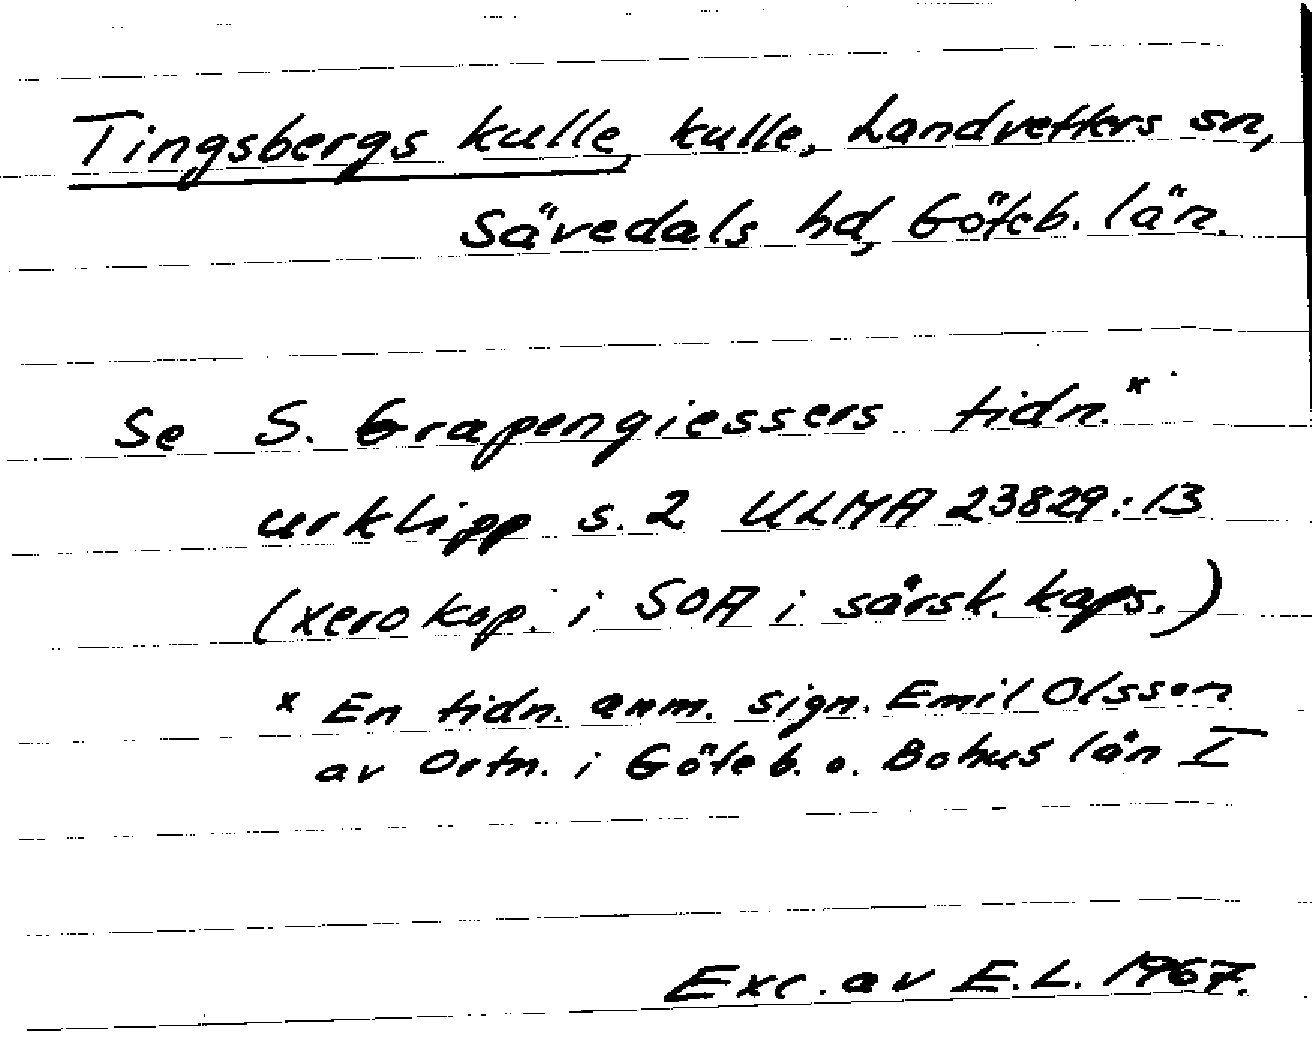 Tingsbergs kulle, kulle, Landvetters sn,
Sävedals hd, Göteb. län.
Se S. Grapengiessers tidn.x
urklipp s. 2 ULMA 23829:13
(xerokop. i SOA i särsk. kaps.)
x En tidn. anm. sign. Emil Olsson
av Ortn. i Göteb. o. Bohus län I
Exc. av E.L. 1967.